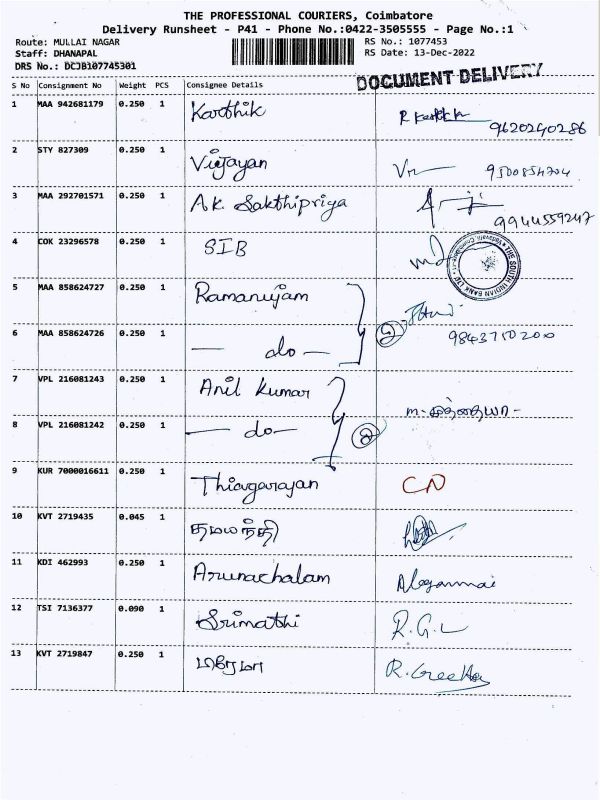 THE PROFESSIONAL COURIERS, Coimbatore
Delivery Runsheet - P41 - Phone No.:0422-3505555 - Page No.:1
Route: MULLAI NAGAR RS No.: 1077453
Staff: DHANAPAL RS Date: 13-Dec-2022
DRS No.: DCJB107745301
DOCUMENT DELIVERY
S No Consignment No Weight PCS Consignee Details
1 MAA 942681179 0.250 1 Karthik
9620240286
2 STY 827309 0.250 1 Vijayan 9500854704
3 MAA 292701571 0.250 1 A.K. Sakthipriya
9944559247
4 COK 23296578 0.250 1 SIB
THE SOUTH INDIAN BANK LTD
5 MAA 858624727 0.250 1 Ramanujam
6 MAA 858624726 0.250 1 — do — 2 9843750200
7 VPL 216081243 0.250 1 Anil Kumar
8 VPL 216081242 0.250 1 — do — 2
9 KUR 7000016611 0.250 1 Thiagarajan CN
10 KVT 2719435 0.045 1 தமயந்தி
11 KDI 462993 0.250 1 Arunachalam Alagammai
12 TSI 7136377 0.090 1 Srimathi R.G.L
13 KVT 2719847 0.250 1 R. Geetha